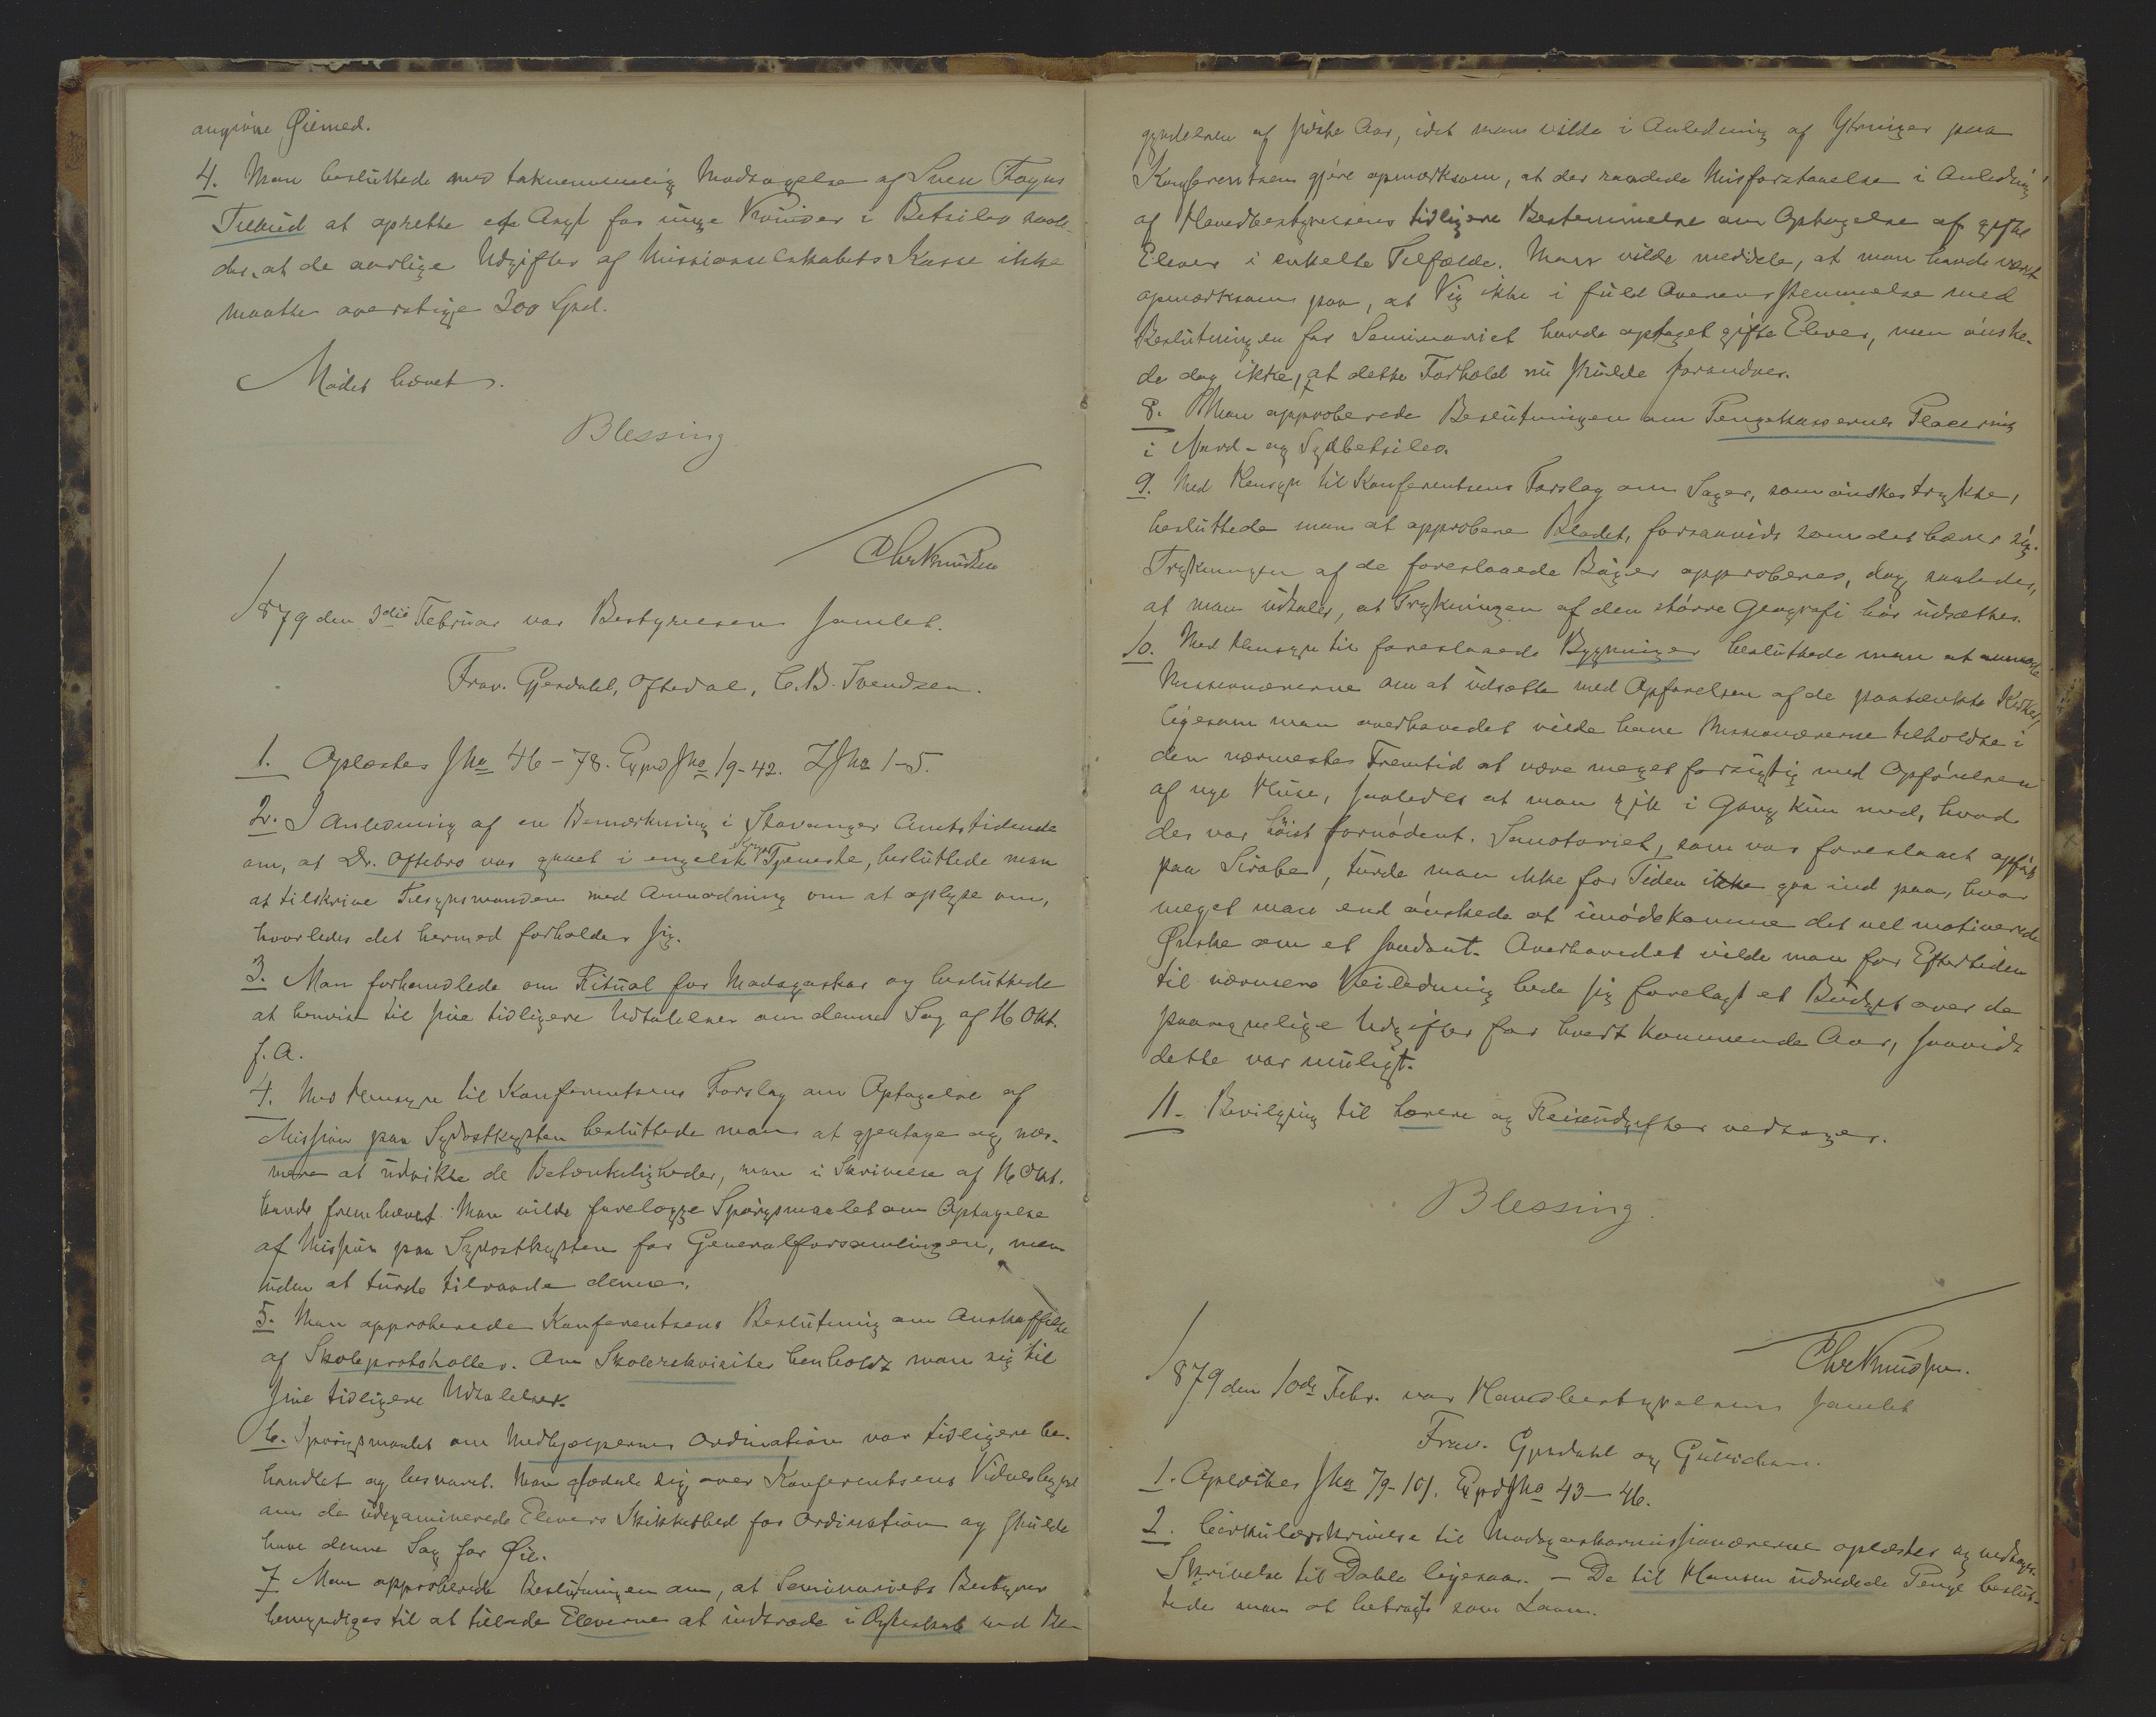 angivne Øiemed.
4. Man besluttede med taknemmelig Modtagelse af Sven Foyns
Tilbud at oprette et Asyl for unge Kvinder i Betsileo saale-
des, at de aarlige Udgifter af Missionsselskabets Kasse ikke
maatte overstige 300 Spd.
Mødet hævet.
Blessing
Chr Knudsen
1879 den 3die Februar var Bestyrelsen samlet.
Frav. Gjerdahl, Oftedal, C. B. Svendsen.
1. Oplæstes Jno 46-78. Exped Jno 19-42. ZJno 1-5.
2. I Anledning af en Bemærkning i Stavanger Amtstidende
om, at Dr. Oftebro var gaaet i engelsk Krigs Tjeneste, besluttede man
at tilskrive Tilsynsmanden med Anmodning om at oplyse om,
hvorledes det hermed forholder sig.
3. Man forhandlede om Ritual for Madagaskar og besluttede
at henvise til sine tidligere Udtalelser om denne Sag af 16 Okt.
f. A.
4. Med Hensyn til Konferentsens Forslag om Optagelse af
Mission paa Sydostkysten besluttede man at gjentage og nær-
mere at udvikle de Betænkeligheder, man i Skrivelse af 16 Okt.
havde fremhævet. Man vilde forelægge Spørgsmaalet om Optagelse
af Mission paa Sydostkysten for Generalforsamlingen, men
uden at turde tilraade denne.
5. Man approberede Konferentsens Beslutning om Anskaffelse
af Skoleprotokoller. Om Skolerekvisiter henholdt man sig til
sine tidligere Udtalelser.
6. Spørgsmaalet om Medhjælpernes Ordination var tidligere be-
handlet og besvaret. Man glædede sig over Konferentsens Vidnesbyrd
om de udexaminerede Elevers Skikkethed for Ordination og skulde
have denne Sag for Øie.
7 Man approberede Beslutningen om, at Seminariets Bestyrer
bemyndiges til at tillade Eleverne at indtræde i Ægteskab ved Be-
gyndelsen af sidste Aar, idet man vilde i Anledning af Ytringer paa
Konferentsen gjøre opmærksom, at der raadede Misforstaaelse i Anledning
af Hovedbestyrelsens tidligere Bestemmelse om Optagelse af gifte
Elever i enkelte Tilfælde. Man vilde meddele, at man havde været
opmærksom paa, at Vig ikke i fuld Overensstemmelse med
Beslutningen for Seminariet havde optaget gifte Elever, men ønske-
de dog ikke, at dette Forhold nu skulde forandres.
8. Man approberede Beslutningen om Pengekassernes Placering
i Nord- og Sydbetsileo.
9. Med Hensyn til Konferentsens Forslag om Sager, som ønskes trykte,
besluttede man at approbere Bladet, forsaavidt som det bærer sig.
Trykningen af de foreslaaede Bøger approberes, dog saaledes,
at man udtaler, at Trykningen af den større Geografi bør udsættes.
10. Med Hensyn til foreslaaede Bygninger besluttede man at anmode
Missionærerne om at udsætte med Opførelsen af de paatænkte Kirker,
ligesom man overhovedet vilde have Missionærerne tilholdte i
den nærmeste Fremtid at være meget forsigtig med Opførelsen
af nye Huse, saaledes at man gik i Gang kun med, hvad
der var høist fornødent. Sanatoriet, som var foreslaaet opført
paa Sirabe, turde man ikke for Tiden ikke gaa ind paa, hvor
meget man end ønskede at imødekomme det vel motiverede
Ønske om et saadant. Overhovedet vilde man for Eftertiden
til nærmere Veiledning bede sig forelagt et Budget over de
paaregnelige Udgifter for hvert kommende Aar, saavidt
dette var muligt.
11. Bevilgning til Lærere og Reiseudgifter vedtoges.
Blessing.
Chr Knudsen.
1879 den 10de Febr. var Hovedbestyrelsen samlet
Frav. Gjerdahl og
1. Oplæstes Jno 79-101. ExpdJno 43-46.
2. Cirkulærskrivelse til Madagaskarmissionærerne oplæstes og vedtoges.
Skrivelse til Dahle ligesaa. - De til Hansen udredede Penge beslut-
tedes man at betragte som Laan.